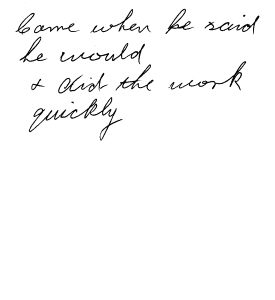 Came when he said
he would
+ did the work
quickly